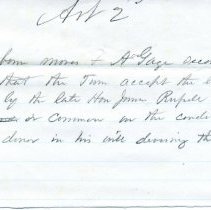 Act 2
born moves & A Gage secon
that the Town accept the
by the late Hon James Russell
or common on the condi
donor in his will devising the